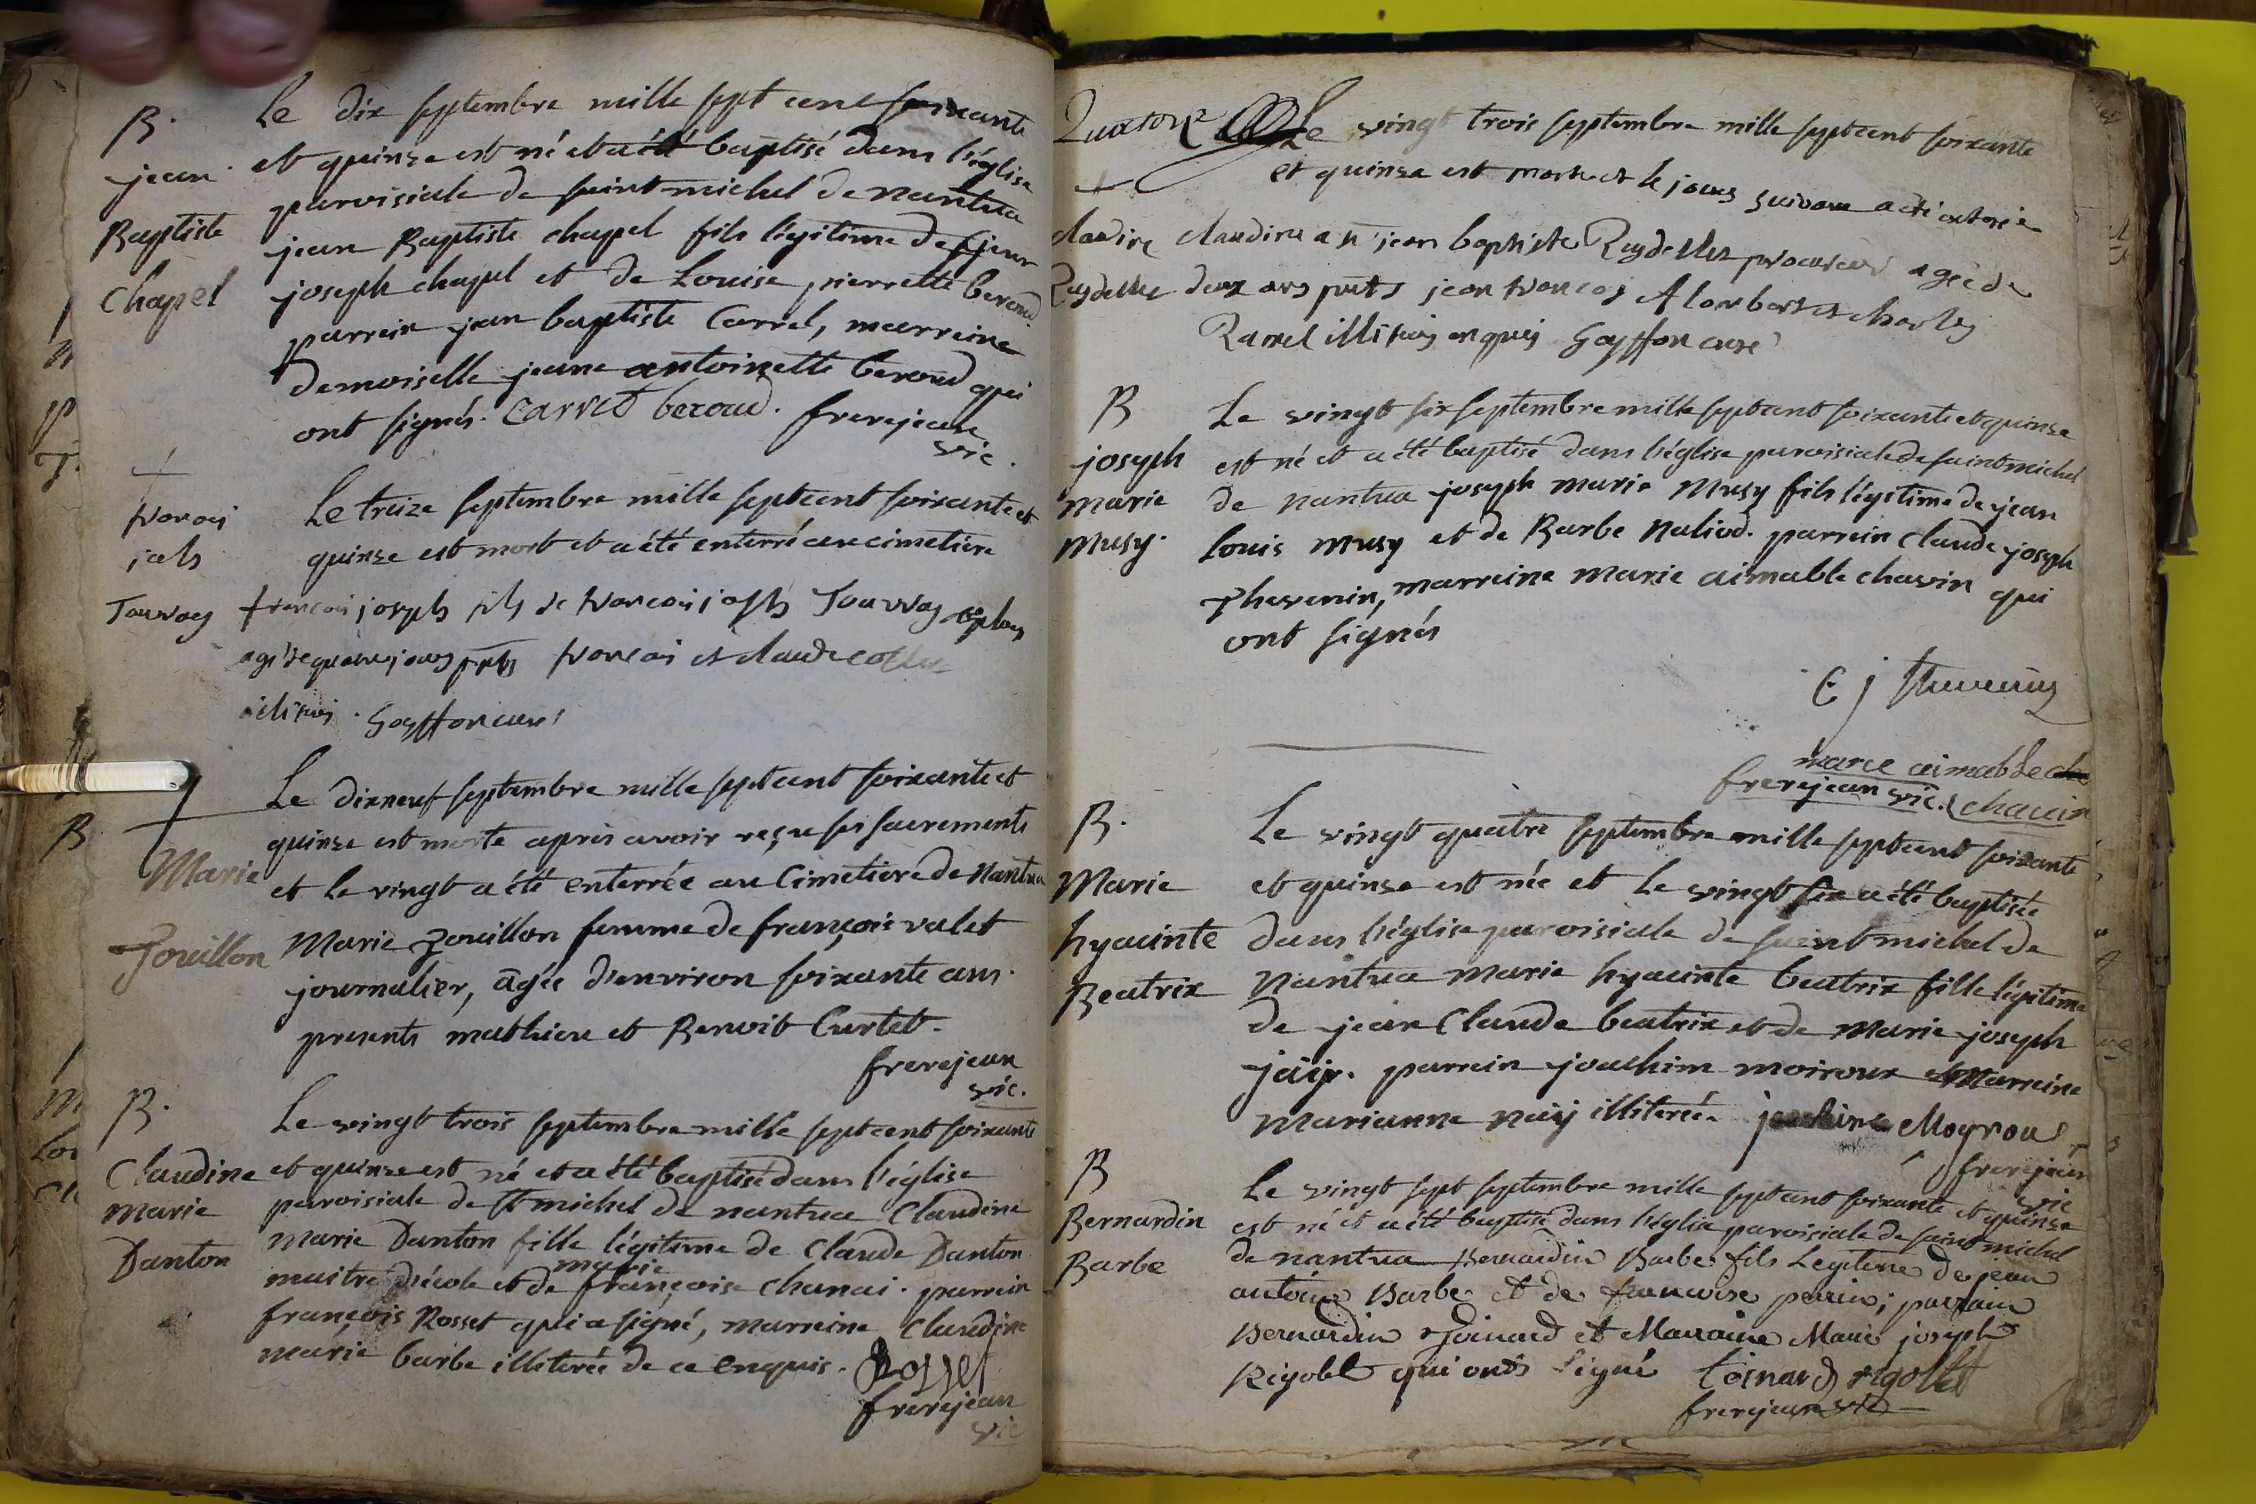 B.
jean
Baptiste
Chapel
Le dix septembre mille sept cent soixante
et quinze est né et a été baptisé dans l'église
paroisiale de saint michel de nantua
jean Baptiste chapel fils légitime de jean
joseph chapel et de Louise pierrette beroud
parrein jean baptiste Carrel, marreine
demoiselle jeanne antoinette beroud qui
ont signés. Carrel beroud. frerejean
vic.
Le treize septembre mille sept cent soixante et
quinze est mort et a été enterré au cimetière
francois joseph fils de francois joseph
agé de quatre jours francois et claude
Goyffon curé
Marie
Jouillon
Le dixneuf septembre mille sept cent soixante et
quinze est morte après avoir reçu ses sacrements
et le vingt a été enterrée au Cimetiere de Nantua
Marie Jouillon femme de françois valet
journalier, âgée d'environ soixante ans.
presents mathieu et Benoit Curtet.
frerejean
vic.
B.
Claudine
marie
Danton
Le vingt trois septembre mille sept cent soixante
et quinze est né et a été baptisé dans l'église
paroisiale de st michel de nantua Claudine
marie Danton fille légitime de Claude Danton
maitre d'école et de marie françoise chanai. parrein
françois Rosset qui a signé, marreine Claudine
marie barbe illiterée de ce enquis. Rosset
frerejean
vic
Quatorze
claudine
Reydellet
Le vingt trois septembre mille sept cent soixante
et quinze est morte et le jour suivant a été enterrée
claudine a sr jean baptiste Reydellet procureur agée de
deux ans jean francois Alombert et charles
Ravel enquis Goyffon curé
B
joseph
marie
Musy.
Le vingt six septembre mille sept cent soixante et quinze
est né et a été baptisé dans l'église paroisiale de saint michel
de nantua joseph marie Musy fils légitime de jean
Louis Musy et de Barbe Naliod. parrein Claude joseph
Thevenin, marreine marie aimable chavin qui
ont signés
C j Thevenin
marie aimable
frerejean vic. chavin
B.
Marie
hyacinte
Beatrix
Le vingt quatre septembre mille sept cent soixante
et quinze est née et le vingt six a été baptisée
dans l'église paroisiale de saint michel de
Nantua marie hyacinte beatrix fille légitime
de jean Claude beatrix et de Marie joseph
jaij. parrein joachim moiroux et Marreine
Marianne naij illiterée. joachim Moyroud
frerejean
vic
B
Bernardin
Barbe
Le vingt sept septembre mille sept cent soixante et quinze
est né et a été baptisé dans l'église paroisiale de saint michel
de nantua Bernardin Barbe fils Legitime de jean
antoine Barbe et de francoise perrin; parrain
Bernardin Joinard et Marraine Marie joseph
Rigolet qui ont signé Joinard rigollet
frerejean vic